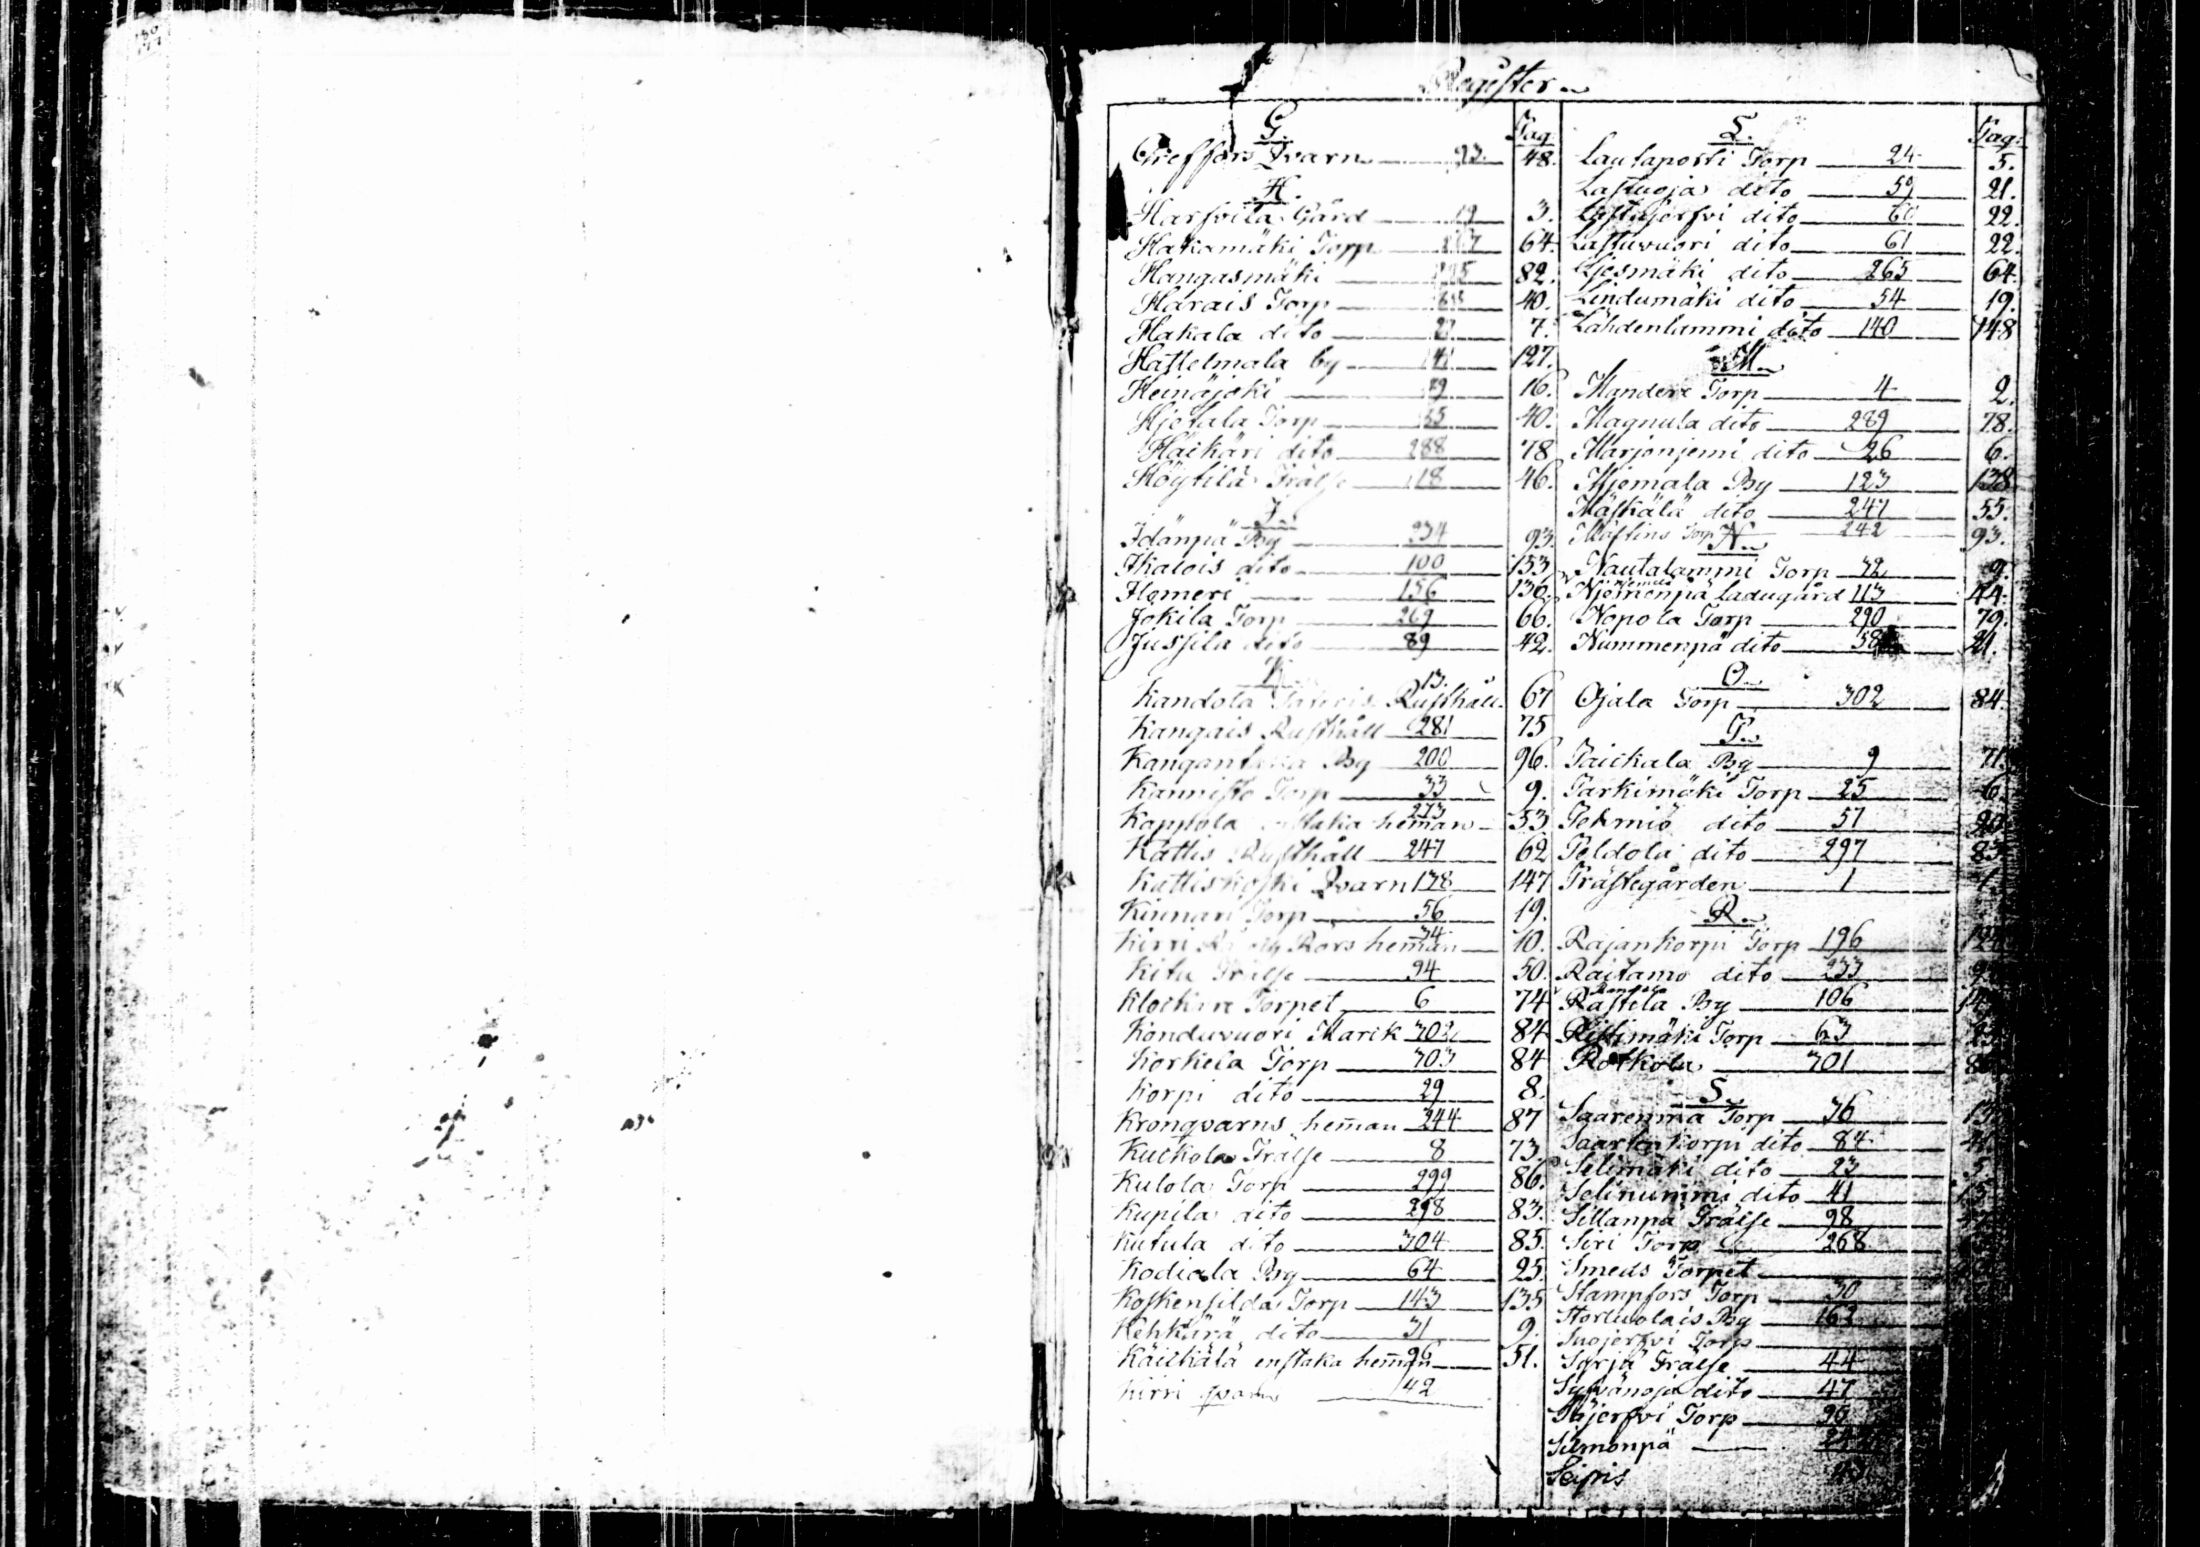 Register
G. Pag.
Greffors Qvarn 93. 48.
H.
Harfvila Gård 19 3.
Hakamäki Torp 267 64.
Hangasmäki 82.
Harais Torp 40.
Hakala dito 27 7.
Hattelmala by 141 127.
Heinäjoki 16.
Hjetala Torp 40.
Häikäri dito 288 78
Höytilä Frälse 118 46.
I.
Idänpä By 234 93.
Ikalois dito 100 153
Ilomeri 156 136
Jokila Torp 269 66.
Jussila dito 89 42.
K. 13.
Kandola Rusthåll 67
Kangais Rusthåll 281 75
Kangantaka By 200 96.
Kannisto Torp 33 9.
Kappola enstaka hem̄an 273 53
Kattis Rusthåll 247 62
Kattiskoski Qvarn 128 147
Kinnari Torp 56 19.
Kirri Rå och Rörs hem̄an 34 10.
Kitu Frälse 94 50.
Klockare Torpet 6 74
Konduvuori Mark 302 84
Korkela Torp 303 84
Korpi dito 29 8.
Kronqvarns hem̄an 244 87
Kutkola Frälse 8 73.
Kulola Torp 299 86.
Kupila dito 298 83.
Kutula dito 304 85.
Kodiala By 64 25.
Koskensilda Torp 143 135
Kehkärä dito 31 9.
Käikälä enstaka hem̄an 96 51.
Kirri qvarn 142
L. Pag:
Lautaporti Torp 24 5.
Lastuoja dito 59 21.
Lastujerfvi dito 60 22.
Lastuvuori dito 61 22.
Ljesmäki dito 265 64.
Lindumäki dito 54 19.
Lähdenlammi dito 140 148
M.
Mandere Torp 4 2.
Magnula dito 289 78.
Marjonjemi dito 26 6.
Mjemala By 123 138
Mäskälä dito 247 55.
Mästins Torp 242 93.
N.
Nautalammi Torp 32 9.
Njemenpä Ladugård 113 44.
Nopola Torp 290 79.
Nummenpä dito 58 21.
O.
Ojala Torp 302 84.
P.
Paickala By 9 71.
Parkimäki Torp 25 6.
Pekrniö dito 57 20
Peldola dito 297 83
Prästegården 1 1.
R.
Rajankorpi Torp 196
Raitamo dito 233
Rastila By 106
Ristimäki Torp 63 23
Rotkola 301
S.
Saarenma Torp 36 13
Saartenkorpi dito 84 41
Selimäki dito 23 5
Selinummi dito 41 15
Sillanpä Frälse 98
Siri Torp 268
Smeds Torpet
Stampfors Torp 30
Storluolais By 162
Suojerfvi Torp
Syrjä Frälse 44
Syvänoja dito 47
Torp 95
Silmonpä
Seipris